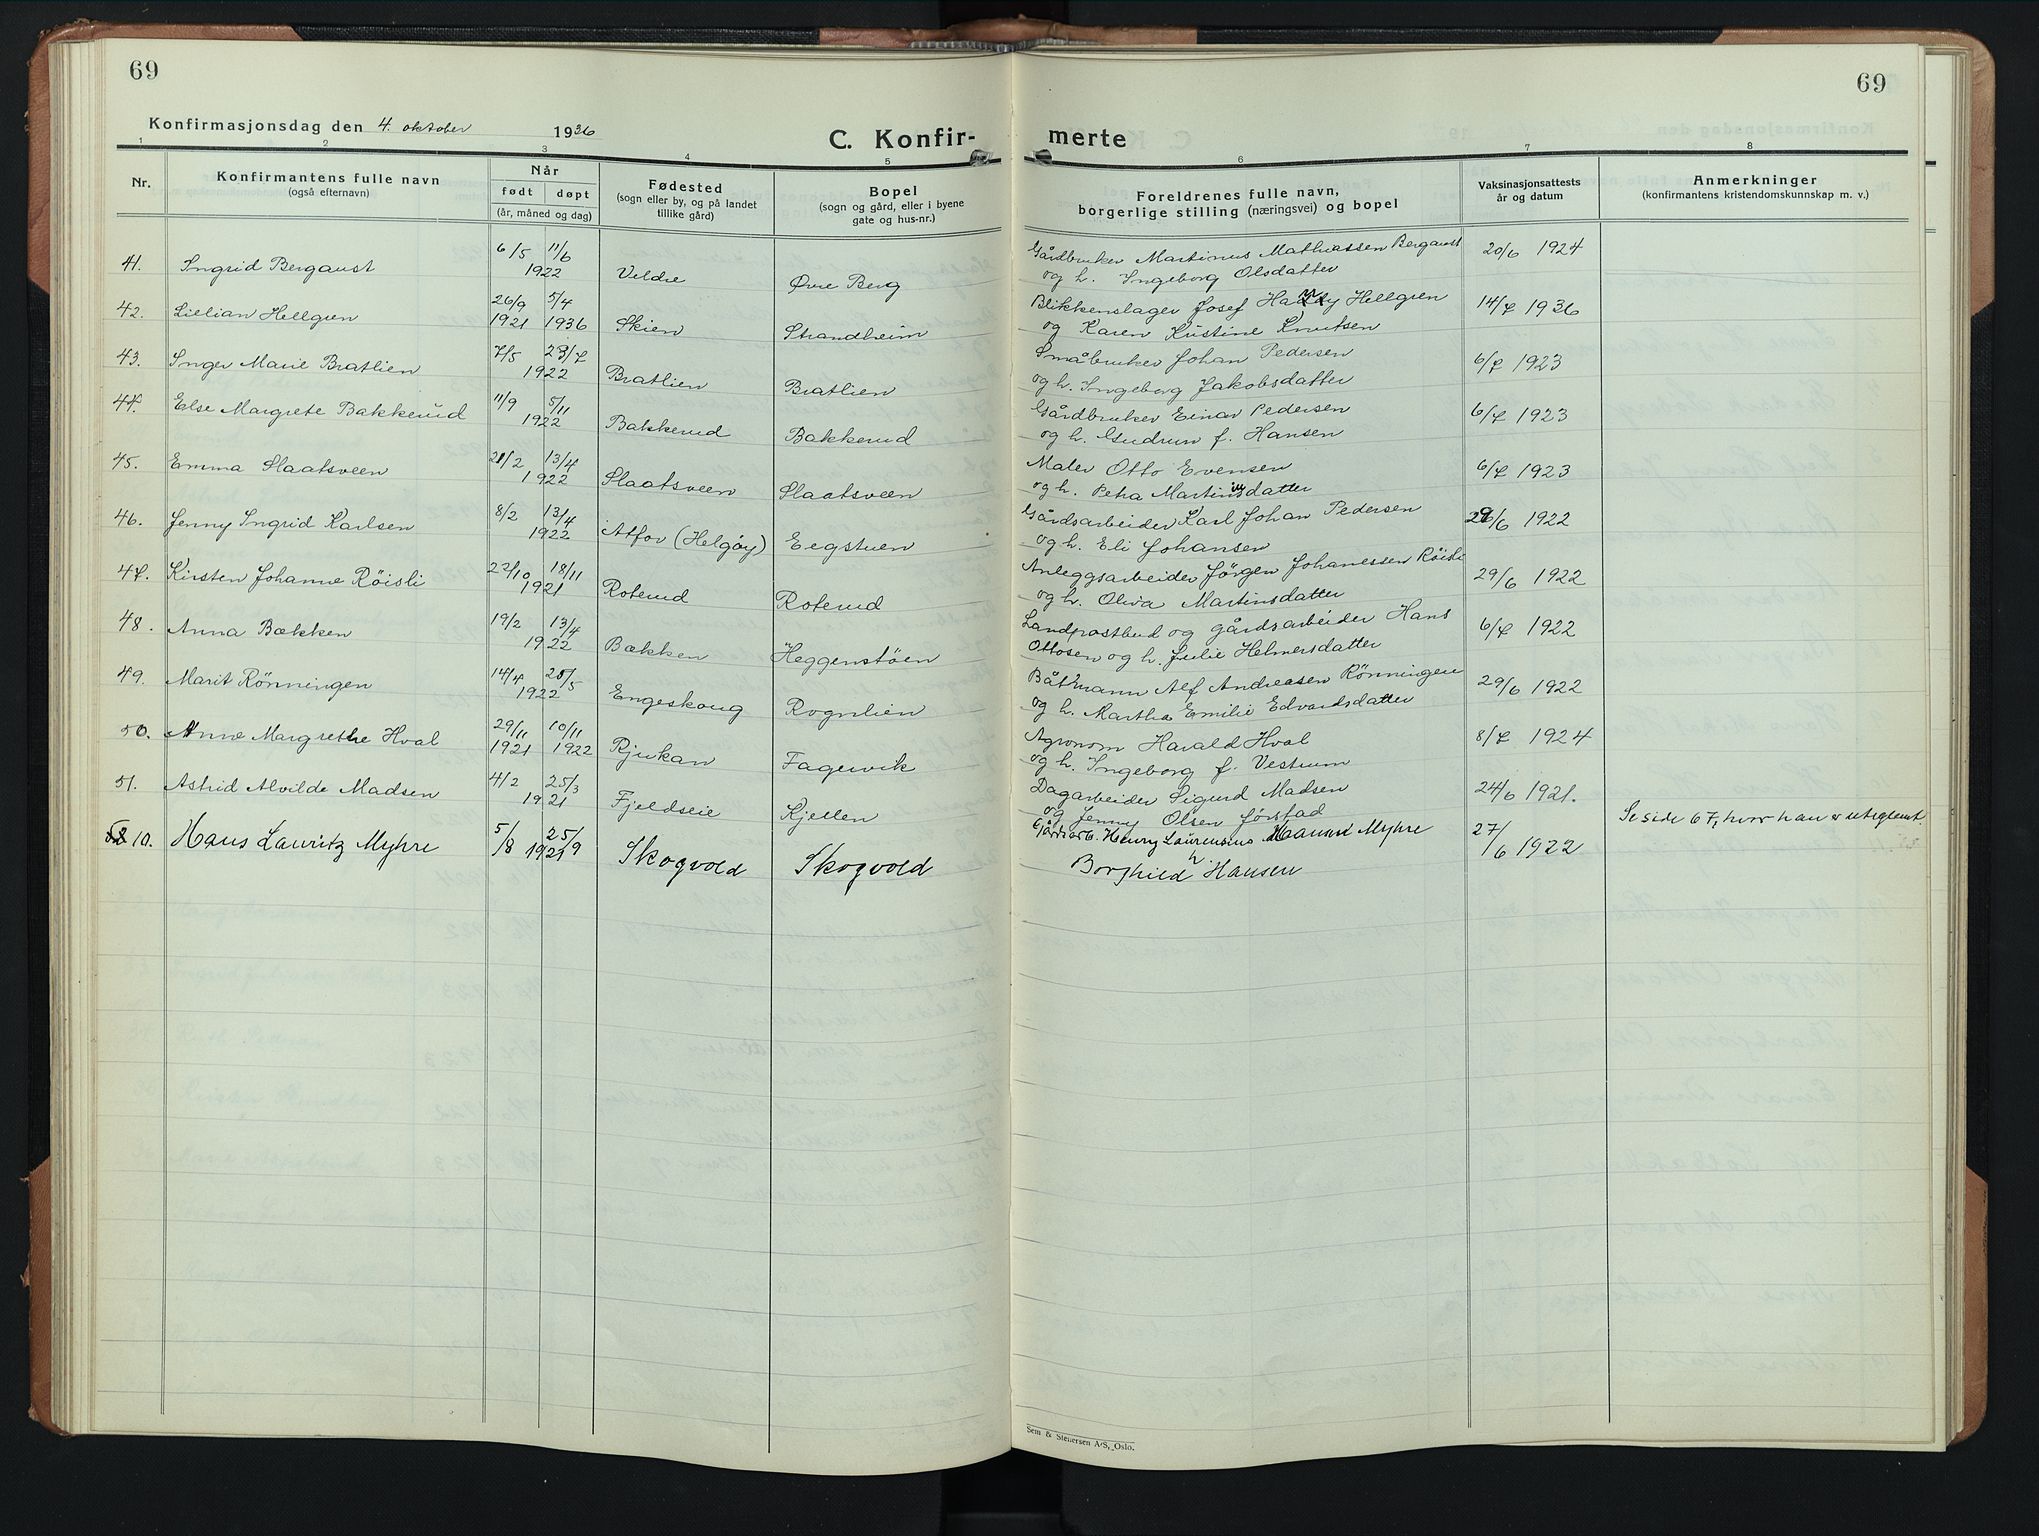 69
69
Konfirmasjonsdag den 4. oktober 1936
C. Konfir- merte
1 2 3 4 5 6 7 8
Nr. Konfirmantens fulle navn (også efternavn) Når født døpt (år, måned og dag) Fødested (sogn eller by, og på landet tillike gård) Bopel (sogn og gård, eller i byene gate og hus-nr.) Foreldrenes fulle navn, borgerlige stilling (næringsvei) og bopel Vaksinasjonsattests år og datum Anmerkninger (konfirmantens kristendomskunnskap m. v.)
41. Ingrid Bergaust 6/5 11/6 1922 Veldre Øvre Berg Gårdbruker Martinus Mathiassen Bergaust 20/6 1924
og h. Ingeborg Olsdatter
42. Lillian Hellgren 26/9 1921 5/4 1936 Skien Strandheim Blikkenslager Josef Hellgren 14/7 1936
og Karen Kristine Knutsen
43. Inger Marie Bratlien 7/5 23/7 1922 Bratlien Bratlien Småbruker Johan Pedersen 6/7 1923
og h. Ingeborg Jakobsdatter
44. Else Margrete Bakkerud 11/9 5/11 1922 Bakkerud Bakkerud Gårdbruker Einar Pedersen 6/7 1923
og h. Gudrun f. Hansen
45. Emma Slaatsveen 21/2 13/4 1922 Slaatsveen Slaatsveen Maler Otto Evensen 6/7 1923
og h. Petra Martinusdatter
46. Jenny Ingrid Karlsen 8/2 13/4 1922 Atfor (Helgöy) Eegstuen Gårdsarbeider Karl Johan Pedersen 29/6 1922
og h. Eli Johansen
47. Kirsten Johanne Röisli 22/10 18/11 1921 Roterud Roterud Anleggsarbeider Jørgen Johanessen Röisli 29/6 1922
og h. Oliva Martinsdatter
48. Anna Bækken 19/2 13/4 1922 Bækken Heggenstöen Landpostbud og gårdsarbeider Hans 6/7 1922
Ottosen og h. Julie Helmersdatter
49. Marit Rönningen 14/4 25/5 1922 Engeskoug Rognlien Båtmann Alf Andreasen Rönningen 29/6 1922
og h. Martha Emilie Edvardsdatter
50. Anne Margrethe Hval 29/11 1921 10/11 1922 Rjukan Fagervik Agronom Harald Hval 8/7 1924
og h. Ingeborg f. Vestrum
51. Astrid Alvilde Madsen 4/2 25/3 1921 Fjeldseie Kjellen Dagarbeider Sigurd Madsen 24/6 1921.
og Jenny Olsen Jørstad
10. Hans Lauritz Myhre 5/8 25/9 1921 Skogvold Skogvold Gårdsarb. Henry Laurensius Hansen Myhre 27/6 1922 Se side 67, hvor han er uteglemt.
h Borghild Hansen
Sem & Stenersen A/S, Oslo.